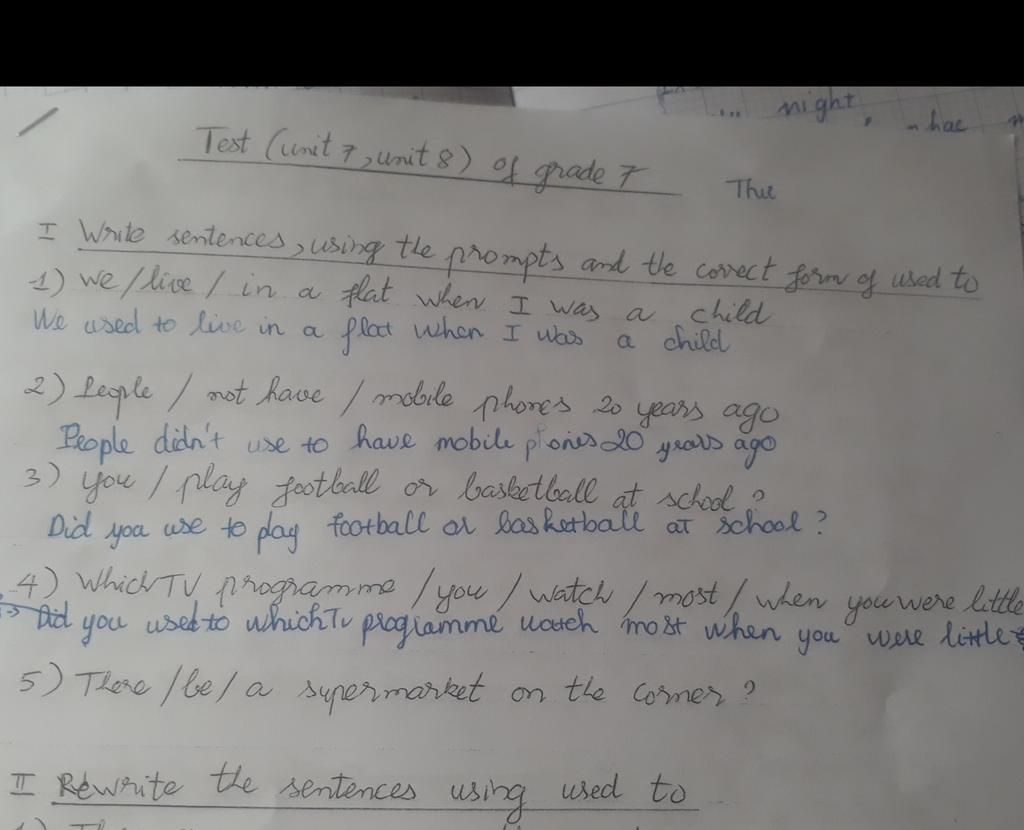 ... night,
Test (unit 7, unit 8) of grade 7
I Write sentences, using the prompts and the correct form of used to
1) We / live / in a flat when I was a child
We used to live in a flat when I was a child
2) People / not have / mobile phones 20 years ago
People didn't use to have mobile phones 20 years ago
3) you / play football or basketball at school?
Did you use to play football or basketball at school?
4) Which TV programme / you / watch / most / when you were little
-> Did you used to which TV programme watch most when you were little
5) There / be / a supermarket on the corner?
II Rewrite the sentences using used to